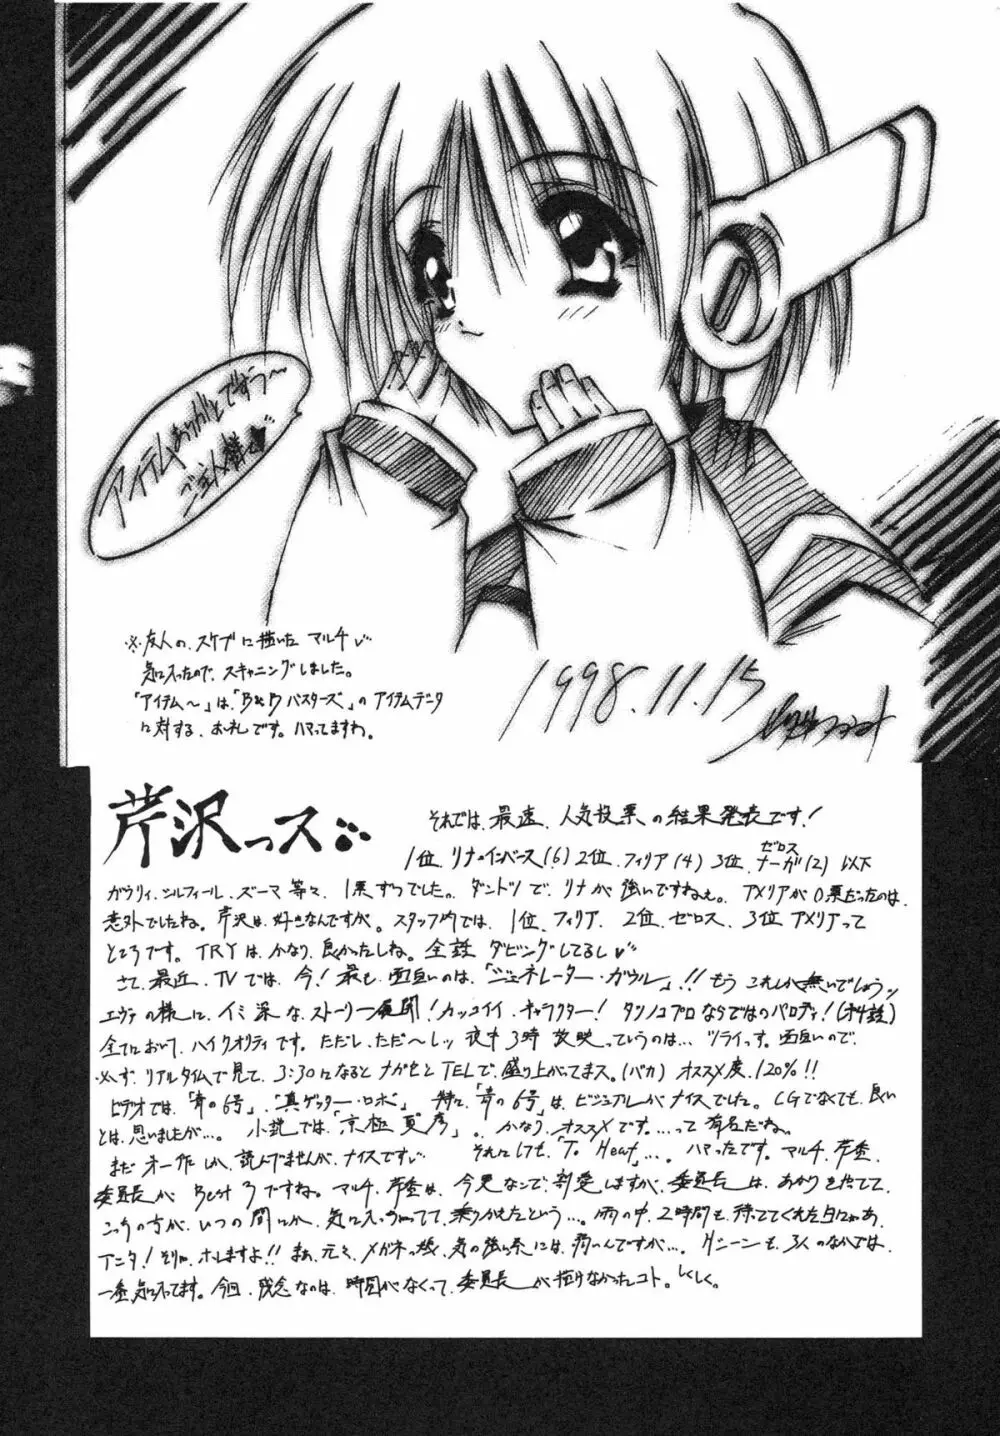 アイテムありがとですぅ〜
ご主人様
※友人の、スケブに描いた マルチ
気に入ったので、スキャニングしました。
「アイテム〜」は、「B&Dバスターズ」の アイテムデータ
に対する、お礼です。ハマってますわ。
1998.11.15
芹沢っス
それでは、最速、人気投票の結果発表です!
1位、リナ=インバース(6) 2位、フィリア(4) 3位、ゼロス ナーガ(2) 以下
ガウリィ、シルフィール、ズーマ 等々、1票ずつでした。ダントツで、リナが強いですねぇ。アメリアが0票だったのは、
意外でしたね。芹沢は、好きなんですが。スタッフ内では、1位、フィリア、2位、ゼロス、3位 アメリアって
ところです。TRYは、かなり、良かったしね。全話 ダビングしてるし
さて、最近、TVでは、今!最も、面白いのは、「ジェネレーター・ガウル」!!もう これしか無いでしょうッ
エヴァの様に、イミ深な、ストーリー展開!カッコイイ、キャラクター!タツノコプロならではのパロディ!(オイ)
全てにおいて、ハイクオリティです。ただし、ただ〜しッ 夜中3時 放映っていうのは…ツライっす。面白いので、
必ず、リアルタイムで見て、3:30になると ながせとTELで、盛り上がってまス。(バカ) オススメ度、120%!!
ビデオでは、「青の6号」、「真ゲッター・ロボ」 特に、「青の6号」は、ビジュアルがナイスでした。CGでなくても、良い
とは、思いましたが…。 小説では、「京極夏彦」。かなり、オススメです。…って 有名だね。
まだ 一作しか、読んでませんが、ナイスです それにしても、「To Heat」…。ハマったです。マルチ、芹香、
委員長が Best 3ですね。マルチ、芹香は、今更なんで、割愛しますが、委員長は、あかりを立てて、
こっちの方が、いつの間にか、気に入っちゃってて、乗りかえたという…。雨の中、2時間も、待っててくれた日にゃあ、
アニタ!そりゃ、ホレますよ!!まぁ、元々、メガネっ娘、気の強い系には、弱いんですが…。Hシーンも、3人のなかでは、
一番、気に入ってます。今回、残念なのは、時間がなくって、委員長が描けなかったコト。しくしく。